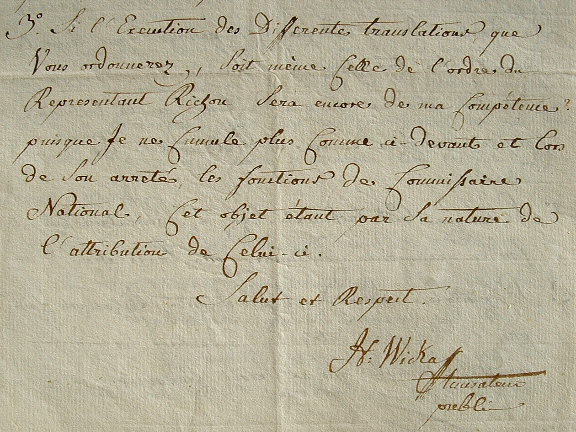 3.° Si l'Execution des Differentes translations que
Vous ordonnerez, soit même Celle de l'ordre du
Representant Richou Sera encore de ma Compétence?
puisque Je ne Cumule plus Comme ci-devant et lors
de Son arreté, les fonctions de Commissaire
National, Cet objet étant par Sa nature de
l'attribution de Celui-ci.
Salut et Respect.
Accusateur
public